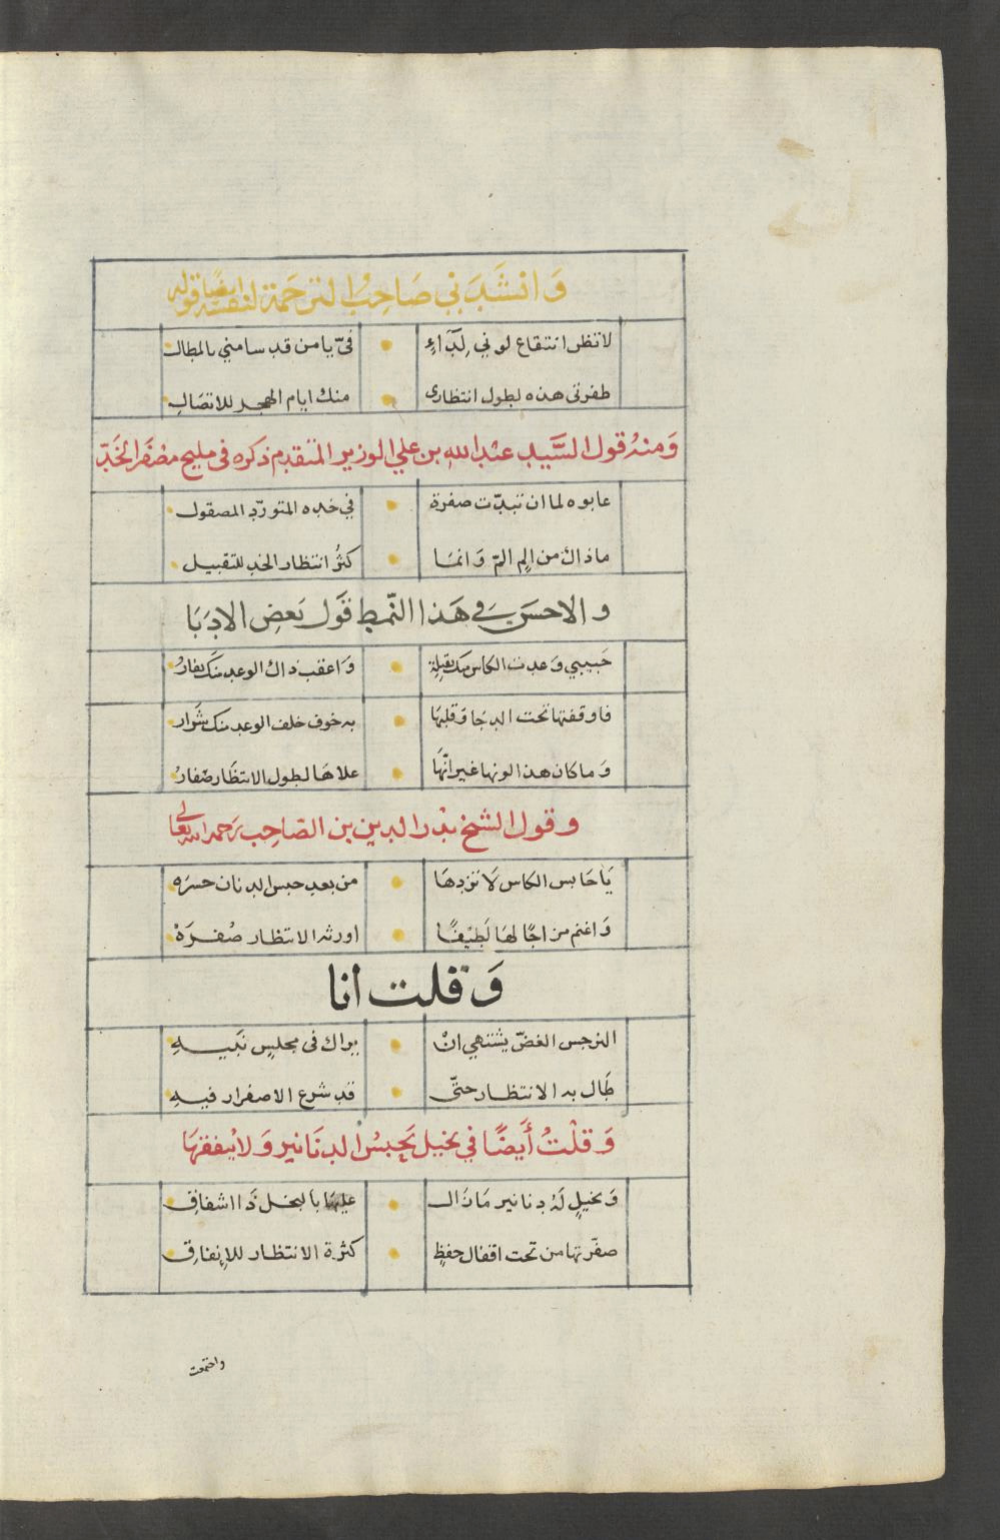 وَانشَدَني صَاحِبُ الترجَمة لنفسه ايضًا قوله
لا تظن انتقاع لوني لِدَآءٍ فيّ يا من قد سامني بالمطال
طفرتي هذه لطول انتظاري منك ايام الهجر للاتصَالِ
وَمنهُ قول السَّيد عبد الله بن علي الوزير المتقدم ذكره في مليح مصْفَر الخَدّ
عابوه لما ان تبدّت صفرة في خده المتورّد المصقول
ماذاك من الم المّ وَانمَا كثُر انتظار الخد للتقبيل
والاحسَن في هَذا النّمط قَول بَعضِ الادبَا
حَبيبي وَعدت الكاس منك بقبلة وَاعقب ذاك الوعد منكَ نفارُ
فاوقفتها تحت الدجَا وَقلبهَا به خوف خلف الوعد منك شَرار
وَما كان هذا لونها غير انّهَا علاهَا لطول الانتظَار صَفارُ
وقول الشيخ بدر الدين بن الصّاحِب رَحمه الله تعالى
يَا حَابس الكاس لَا تزدهَا من بعد حبس الدنان حسرَه
وَاغنم من اجَالهَا لَطِيفًا اورثه الانتظار صُفرَةْ
وَقلت أنا
النرجس الغضّ يشتهي انْ يراك في مجلسٍ نَبيهِ
طَال به الانتظار حتّى قد شرع الاصفرار فيهِ
وَقلْتُ أَيضًا في بخيل يَحبسُ الدنَانير وَلا يُنفقهَا
وَبخيلٍ لَهُ دنانير مَازال عليها بالبخل ذَا اشفاقِ
صفّرتها من تحت اقفال حفظٍ كثرة الانتظار للإنفاقِ
واجتمعت